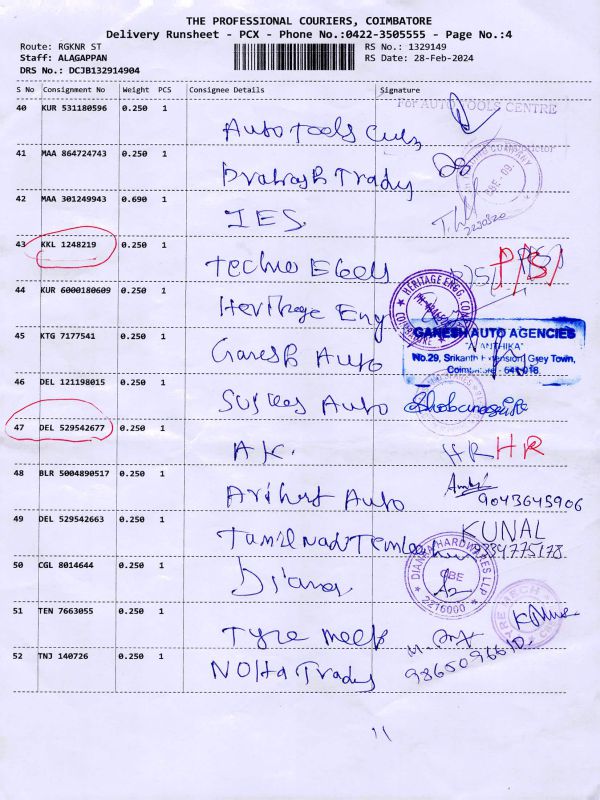 THE PROFESSIONAL COURIERS, COIMBATORE
Delivery Runsheet - PCX - Phone No.:0422-3505555 - Page No.:4
Route: RGKNR ST
RS No.: 1329149
Staff: ALAGAPPAN
RS Date: 28-Feb-2024
DRS No.: DCJB132914904
S No Consignment No Weight PCS Consignee Details Signature
40 KUR 531180596 0.250 1
For AUTO TOOLS CENTRE
Auto Tools
41 MAA 864724743 0.250 1
Prakash Trady
42 MAA 301249943 0.690 1
IES
43 KKL 1248219 0.250 1
Techno
P/S/
44 KUR 6000180609 0.250 1
Heritage Eng
HERITAGE ENGG. COIMBATORE
45 KTG 7177541 0.250 1
Ganesh Auto
GANESH AUTO AGENCIES
No.29, Srikanth Extension, Grey Town,
Coimbatore - 641 018.
46 DEL 121198015 0.250 1
Auto
47 DEL 529542677 0.250 1
AK.
HR HR
48 BLR 5004890517 0.250 1
Arihant Auto
9043645906
49 DEL 529542663 0.250 1
Tamil Nadu
KUNAL
9334775178
50 CGL 8014644 0.250 1
Diana
DIANA HARDWARES LLP
CBE
2216000
51 TEN 7663055 0.250 1
Tyre
52 TNJ 140726 0.250 1
Trady
11